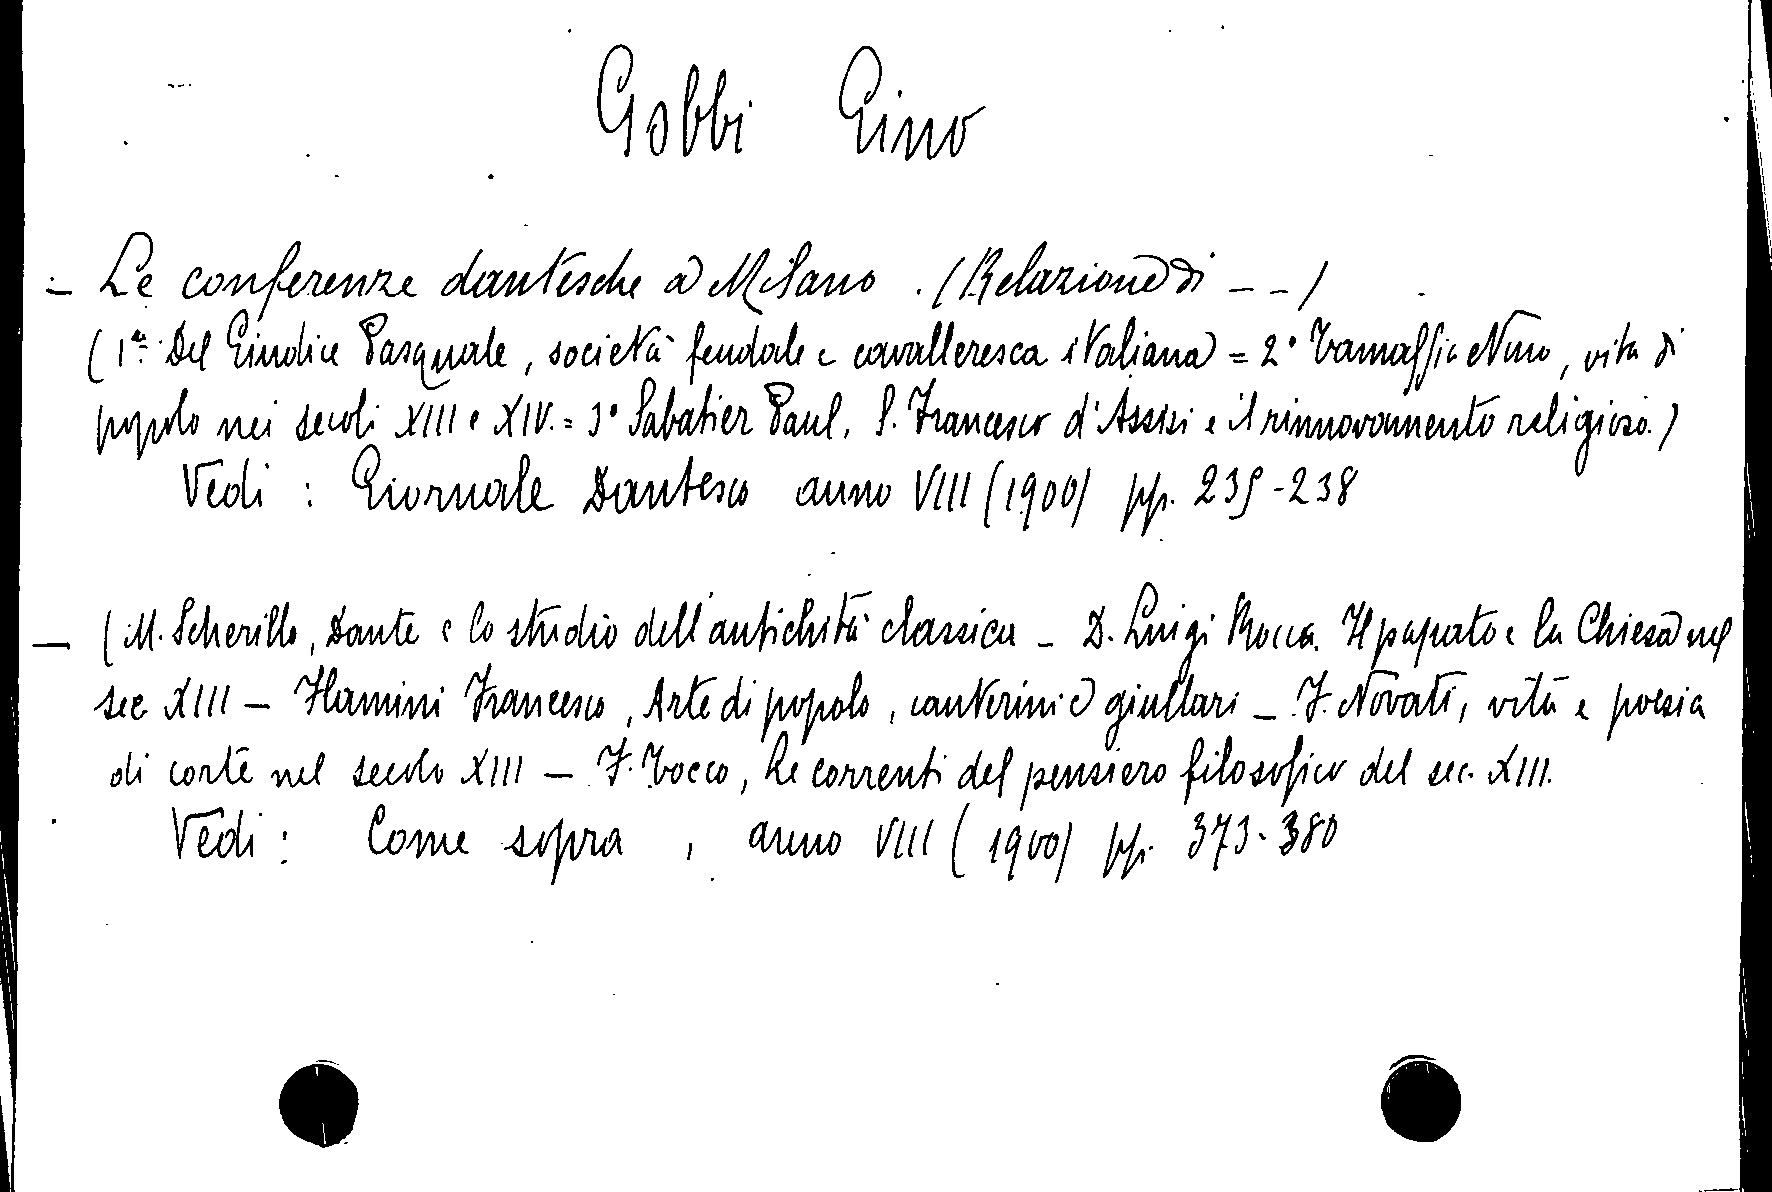 Gobbi Gino
- Le conferenze dantesche a Milano. (Relazione di - - )
(1ª Del Giudice Pasquale, società feudale e cavalleresca italiana = 2° Tamassia Nino, vita di
popolo nei secoli XIII e XIV. = 3° Sabatier Paul. S. Francesco d'Assisi e il rinnovamento religioso.)
Vedi : Giornale Dantesco anno VIII (1900) pp. 235-238
- (M. Scherillo, Dante e lo studio dell'antichità classica - D. Luigi Rocca. Il papato e la Chiesa nel
sec XIII - Flamini Francesco, Arte di popolo, canterini e giullari - F. Novati, vita e poesia
di corte nel secolo XIII - F. Tocco, Le correnti del pensiero filosofico del sec. XIII.
Vedi : Come sopra, anno VIII (1900) pp. 373-380